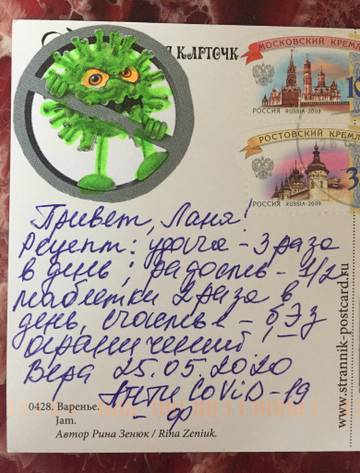 КАРТОЧК
МОСКОВСКИЙ КРЕМЛ
РОССИЯ RUSSIA·2009
РОСТОВСКИЙ КРЕМЛ
РОССИЯ RUSSIA·2009
Привет, Ланя!
Рецепт: удача - 3 раза
в день; радость - 1/2
таблетки 2 раза в
день, счастье - без
ограничений!
Вера 25.05.2020
АНТИ COViD-19
0428. Варенье.
Jam.
Автор Рина Зенюк / Rina Zeniuk.
www.strannik-postcard.ru